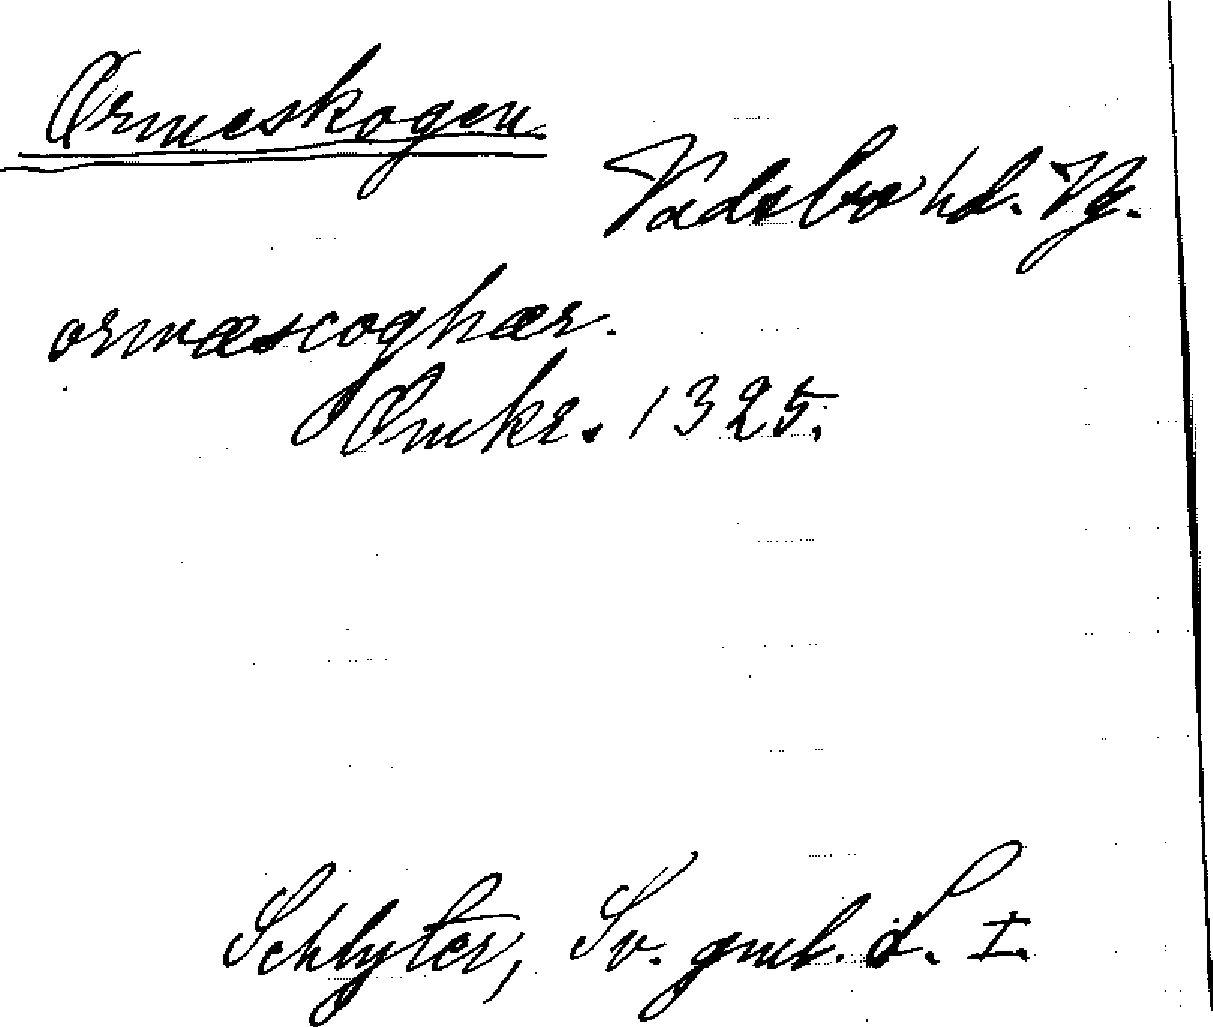 Ormeskogen
Vadsbo hd. Vg.
ormæscoghær.
Omkr. 1325.
Schlyter, Sv. gml. L. I.